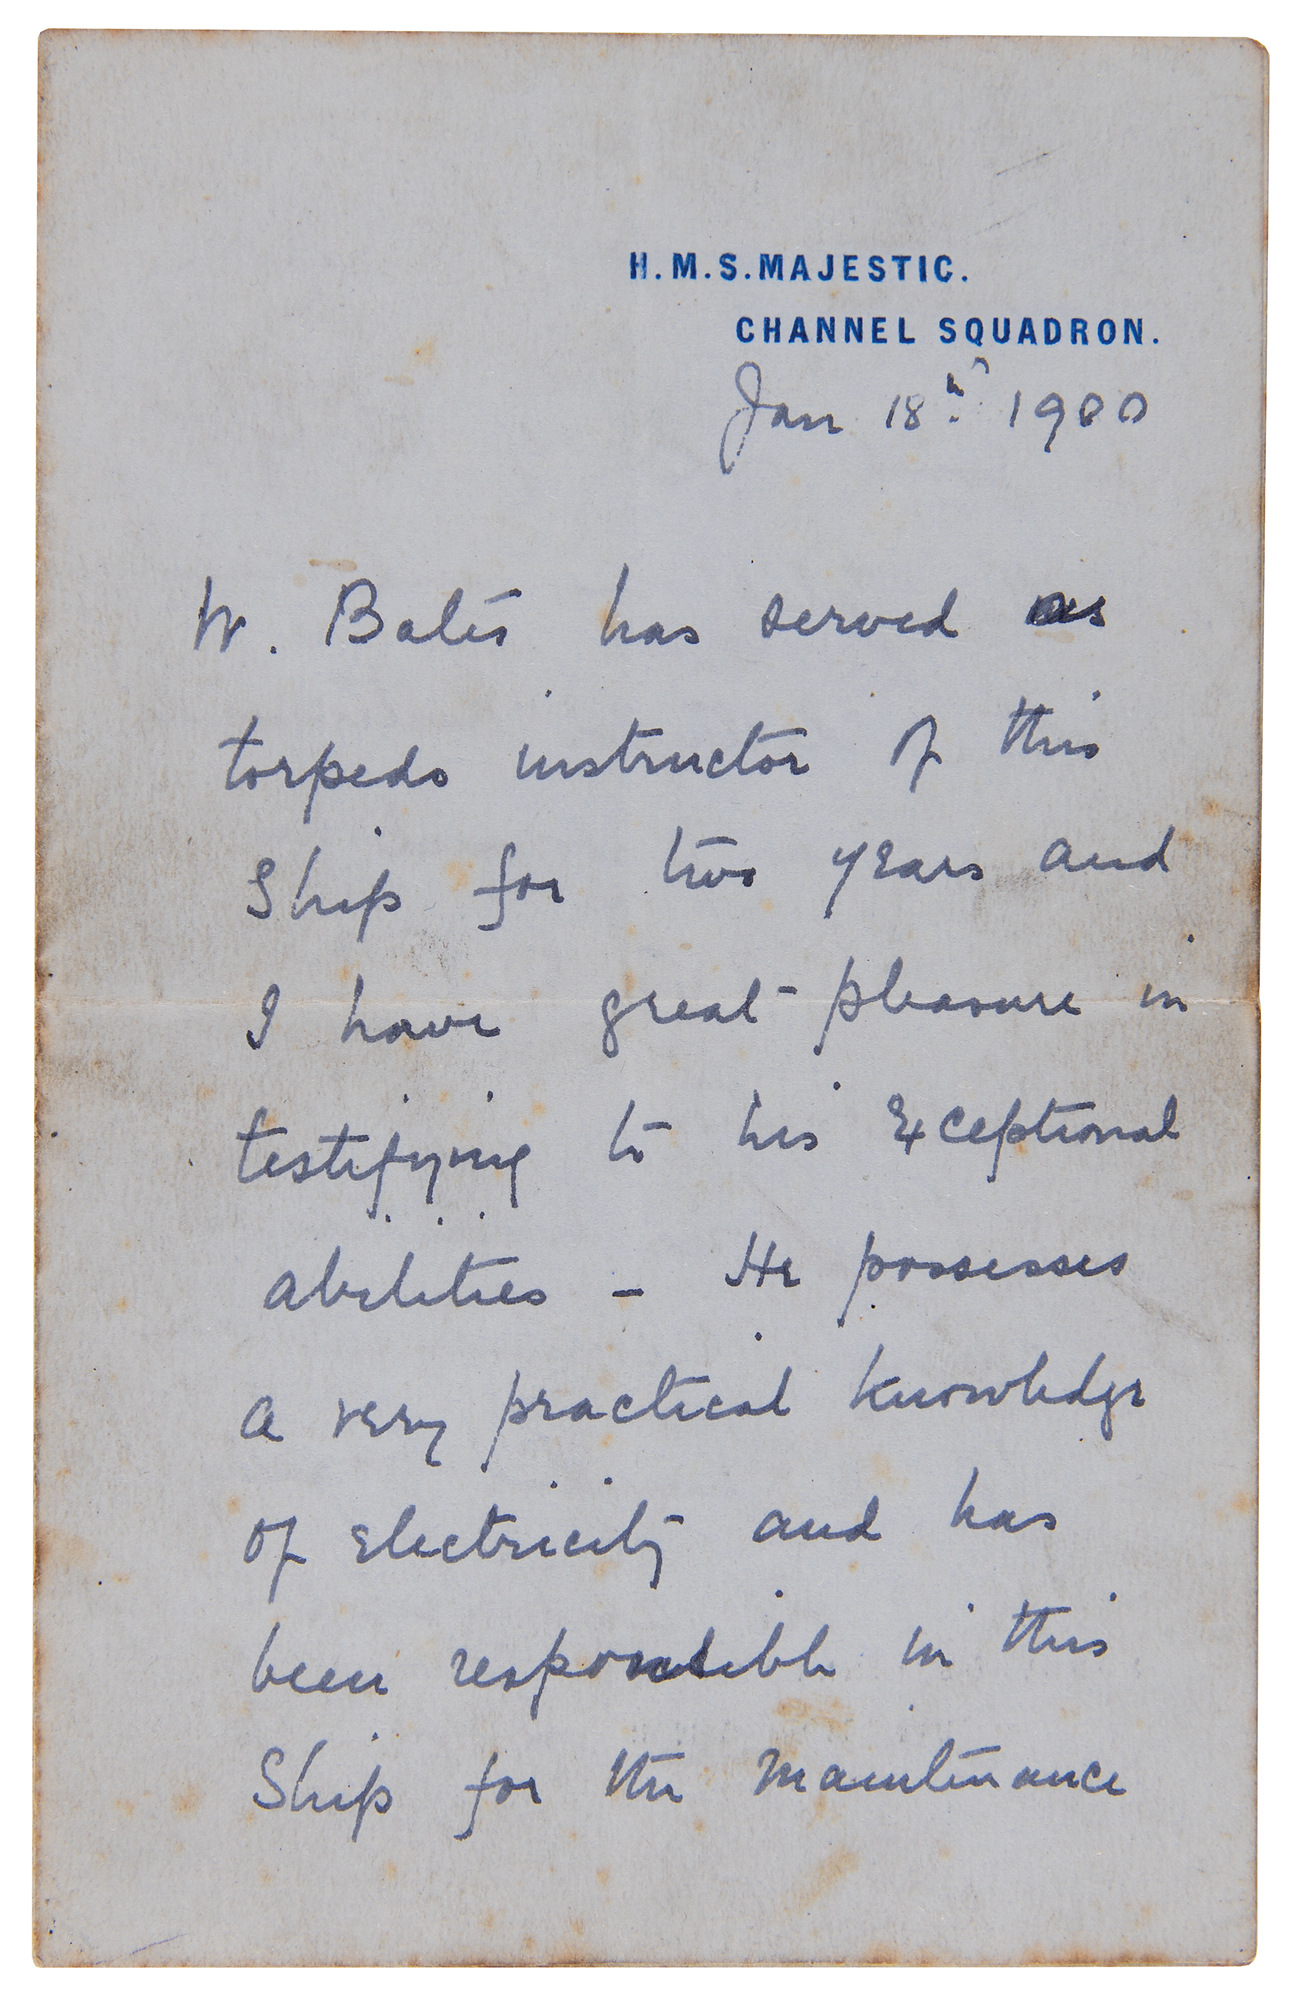 H.M.S. MAJESTIC.
CHANNEL SQUADRON.
Jan 18th 1900
W. Bates has served as
torpedo instructor of this
Ship for two years and
I have great pleasure in
testifying to his Exceptional
abilities – He possesses
a very practical knowledge
of Electricity and has
been responsible in this
Ship for the Maintenance